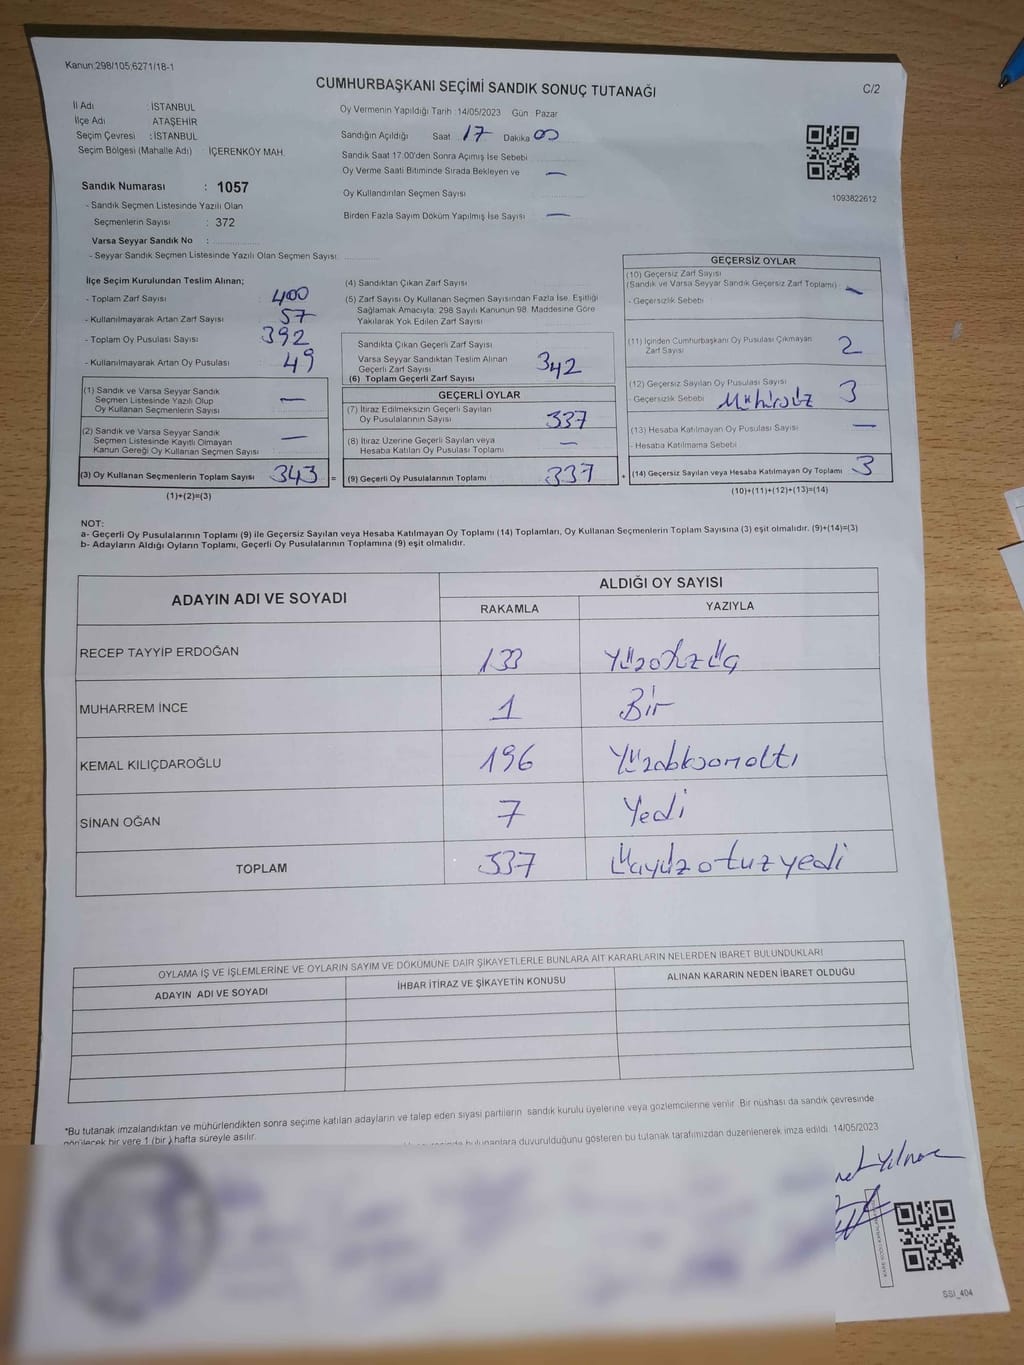 Kanun:298/105,6271/18-1
CUMHURBAŞKANI SEÇİMİ SANDIK SONUÇ TUTANAĞI
C/2
İl Adı : İSTANBUL
İlçe Adı ATAŞEHİR
Seçim Çevresi : İSTANBUL
Seçim Bölgesi (Mahalle Adı) : İÇERENKÖY MAH.
Sandık Numarası : 1057
- Sandık Seçmen Listesinde Yazılı Olan
Seçmenlerin Sayısı : 372
Varsa Seyyar Sandık No :
- Seyyar Sandık Seçmen Listesinde Yazılı Olan Seçmen Sayısı
Oy Vermenin Yapıldığı Tarih :14/05/2023 Gün Pazar
Sandığın Açıldığı Saat 17 Dakika 00
Sandık Saat 17:00'den Sonra Açımış İse Sebebi
Oy Verme Saati Bitiminde Sırada Bekleyen ve —
Oy Kullandırılan Seçmen Sayısı
Birden Fazla Sayım Döküm Yapılmış İse Sayısı —
1093822612
İlçe Seçim Kurulundan Teslim Alınan;
- Toplam Zarf Sayısı : 400
- Kullanılmayarak Artan Zarf Sayısı : 57
- Toplam Oy Pusulası Sayısı : 392
- Kullanılmayarak Artan Oy Pusulası : 49
(1) Sandık ve Varsa Seyyar Sandık
Seçmen Listesinde Yazılı Olup —
Oy Kullanan Seçmenlerin Sayısı
(2) Sandık ve Varsa Seyyar Sandık
Seçmen Listesinde Kayıtlı Olmayan —
Kanun Gereği Oy Kullanan Seçmen Sayısı
(3) Oy Kullanan Seçmenlerin Toplam Sayısı 343 =
(1)+(2)=(3)
(4) Sandıktan Çıkan Zarf Sayısı
(5) Zarf Sayısı Oy Kullanan Seçmen Sayısından Fazla İse, Eşitliği
Sağlamak Amacıyla; 298 Sayılı Kanunun 98. Maddesine Göre
Yakılarak Yok Edilen Zarf Sayısı
Sandıkta Çıkan Geçerli Zarf Sayısı
Varsa Seyyar Sandıktan Teslim Alınan
Geçerli Zarf Sayısı
(6) Toplam Geçerli Zarf Sayısı 342
GEÇERLİ OYLAR
(7) İtiraz Edilmeksizin Geçerli Sayılan
Oy Pusulalarının Sayısı 337
(8) İtiraz Üzerine Geçerli Sayılan veya
Hesaba Katılan Oy Pusulası Toplamı —
(9) Geçerli Oy Pusulalarının Toplamı 337 +
GEÇERSİZ OYLAR
(10) Geçersiz Zarf Sayısı
(Sandık ve Varsa Seyyar Sandık Geçersiz Zarf Toplamı) —
- Geçersizlik Sebebi
(11) İçinden Cumhurbaşkanı Oy Pusulası Çıkmayan
Zarf Sayısı 2
(12) Geçersiz Sayılan Oy Pusulası Sayısı 3
- Geçersizlik Sebebi Mühürsüz
(13) Hesaba Katılmayan Oy Pusulası Sayısı —
- Hesaba Katılmama Sebebi
(14) Geçersiz Sayılan veya Hesaba Katılmayan Oy Toplamı 3
(10)+(11)+(12)+(13)=(14)
NOT:
a- Geçerli Oy Pusulalarının Toplamı (9) ile Geçersiz Sayılan veya Hesaba Katılmayan Oy Toplamı (14) Toplamları, Oy Kullanan Seçmenlerin Toplam Sayısına (3) eşit olmalıdır. (9)+(14)=(3)
b- Adayların Aldığı Oyların Toplamı, Geçerli Oy Pusulalarının Toplamına (9) eşit olmalıdır.
ADAYIN ADI VE SOYADI
ALDIĞI OY SAYISI
RAKAMLA YAZIYLA
RECEP TAYYİP ERDOĞAN 133 Yüzotuzüç
MUHARREM İNCE 1 Bir
KEMAL KILIÇDAROĞLU 196 Yüzdoksanaltı
SİNAN OĞAN 7 Yedi
TOPLAM 337 Üçyüzotuzyedi
OYLAMA İŞ VE İŞLEMLERİNE VE OYLARIN SAYIM VE DÖKÜMÜNE DAİR ŞİKAYETLERLE BUNLARA AİT KARARLARIN NELERDEN İBARET BULUNDUKLARI
ADAYIN ADI VE SOYADI İHBAR İTİRAZ VE ŞİKAYETİN KONUSU ALINAN KARARIN NEDEN İBARET OLDUĞU
*Bu tutanak imzalandıktan ve mühürlendikten sonra seçime katılan adayların ve talep eden siyasi partilerin sandık kurulu üyelerine veya gözlemcilerine verilir. Bir nüshası da sandık çevresinde
görülecek bir yere 1 (bir) hafta süreyle asılır.
bulunanlara duyurulduğunu gösteren bu tutanak tarafımızdan düzenlenerek imza edildi. 14/05/2023
Yılmaz
SSI_404